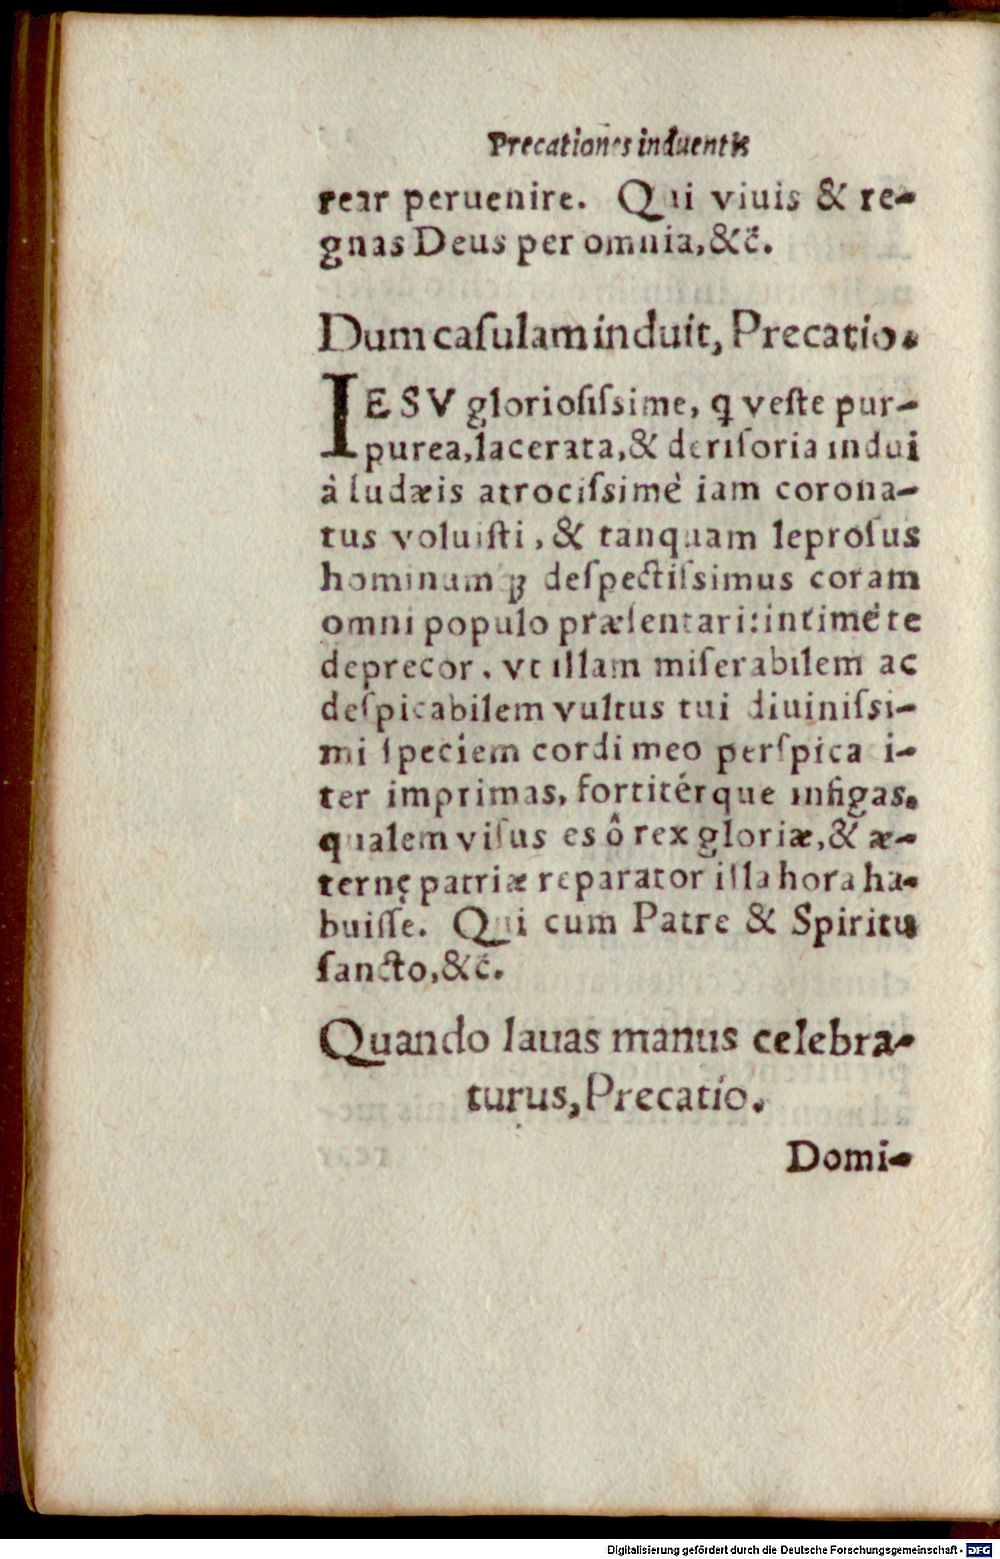 Precationes induentis
rear peruenire. Qui viuis & re-
gnas Deus per omnia, &c̄.
Dum caſulam induit, Precatio.
IESV glorioſiſsime, ꝗ veſte pur-
purea, lacerata, & deriſoria indui
à Iudæis atrociſsimè iam corona-
tus voluiſti, & tanquam leproſus
hominumꝗꝫ deſpectiſsimus coram
omni populo præſentari: intimè te
deprecor, vt illam miſerabilem ac
deſpicabilem vultus tui diuiniſsi-
mi ſpeciem cordi meo perſpicaci-
ter imprimas, fortitérque infigas.
qualem viſus es ô rex gloriæ, & æ-
ternę patriæ reparator illa hora ha-
buiſſe. Qui cum Patre & Spiritu
ſancto, &c̄.
Quando lauas manus celebra-
turus, Precatio.
Domi-
Digitalisierung gefördert durch die Deutsche Forschungsgemeinschaft - DFG